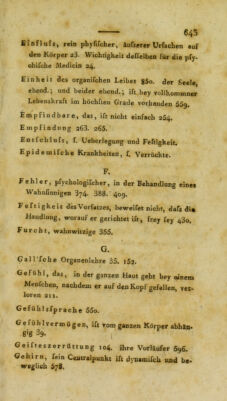 645
Einfluſs, rein phyſiſcher, äuſserer Urſachen auf
den Körper 23. Wichtigkeit desſelben für die pſy-
chiſche Medicin 24.
Einheit des organiſchen Leibes 850. der Seele,
ebend.; und beider ebend.; iſt bey vollkommner
Lebenskraft im höchſten Grade vorhanden 559.
Empfindbare, das, iſt nicht einfach 254.
Empfindung 263. 265.
Entſchluſs, ſ. Ueberlegung und Feſtigkeit.
Epidemiſche Krankheiten, ſ. Verrückte.
F.
Fehler, pſychologiſcher, in der Behandlung eines
Wahnſinnigen 374. 388. 409.
Feſtigkeit des Vorſatzes, beweiſet nicht, daſs die
Handlung, worauf er gerichtet iſt, frey ſey 430.
Furcht, wahnwitzige 355.
G.
Gall'ſche Organenlehre 35. 152.
Gefühl, das, in der ganzen Haut geht bey einem
Menſchen, nachdem er auf den Kopf gefallen, ver-
loren 211.
Gefühlſprache 550.
Gefühlvermögen, iſt vom ganzen Körper abhän-
gig 39.
Geiſteszerrüttung 104. ihre Vorläufer 596.
Gehirn, ſein Centralpunkt iſt dynamiſch und be-
weglich 578.